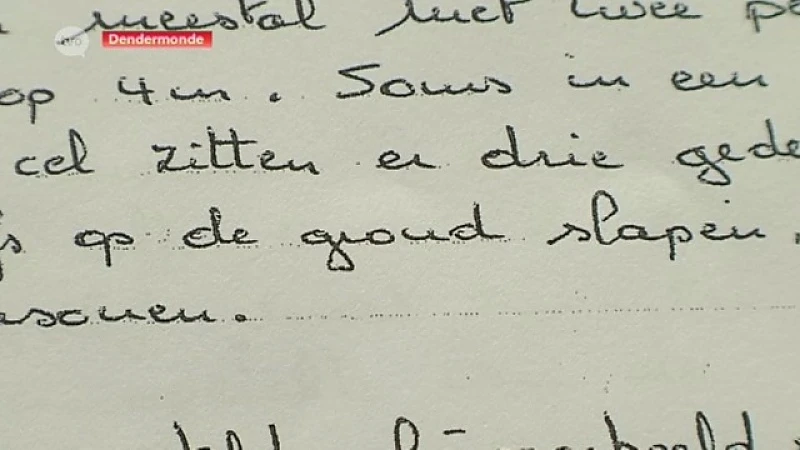 Dendermonde
meestal met twee pe
op 4m. Soms in een
cel zitten er drie gede
js op de grond slapen.
asonen.
bijvoorbeeld